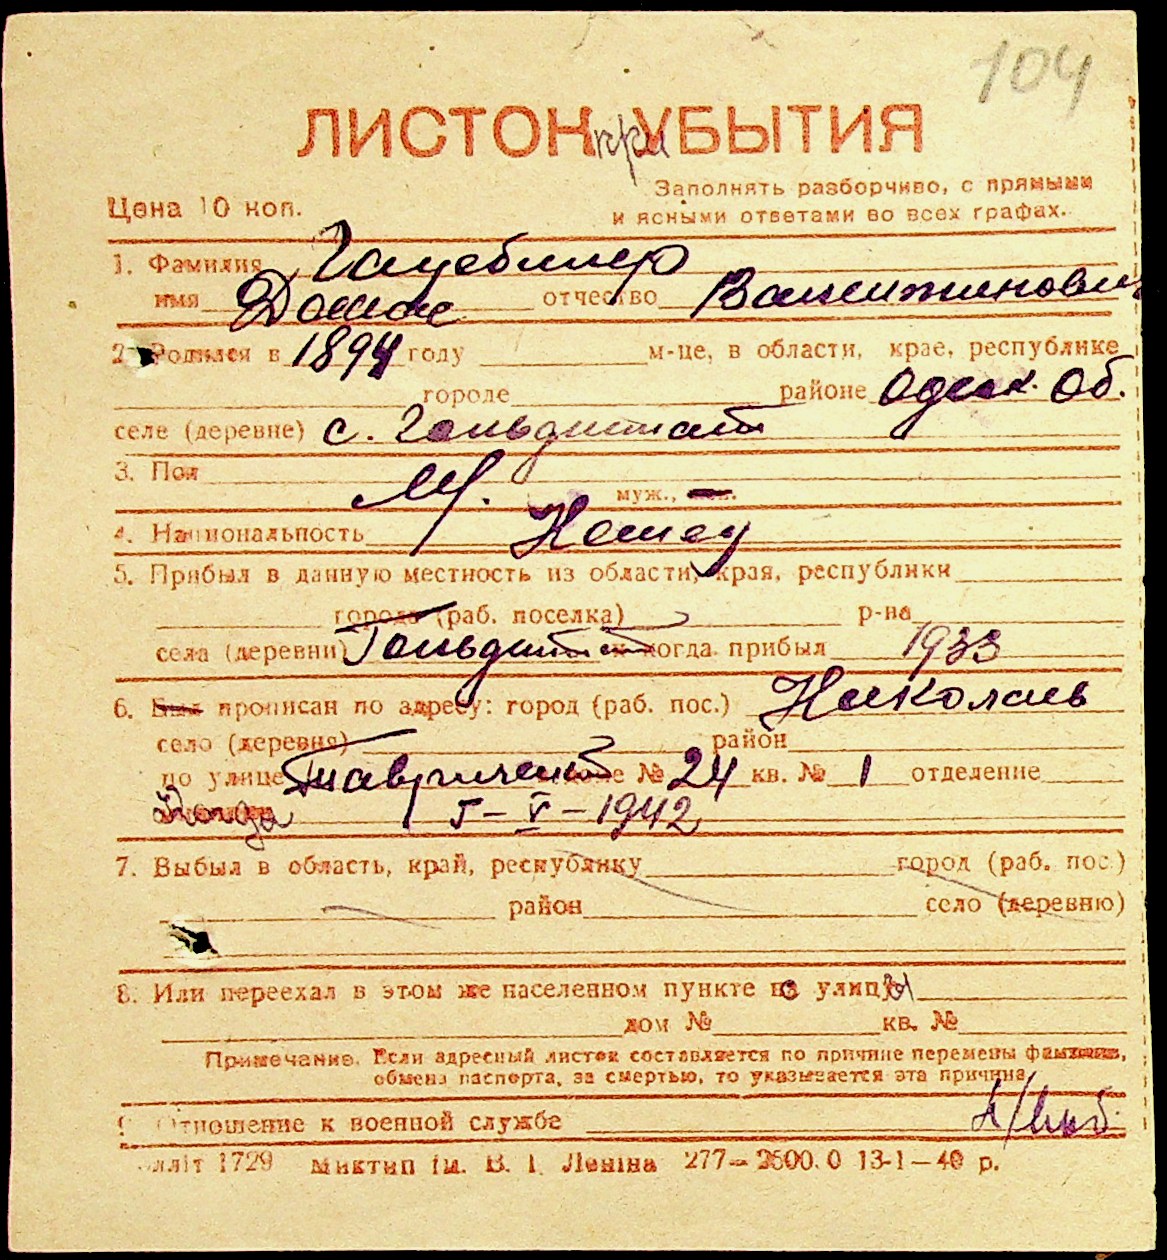 104
ЛИСТОК при УБЫТИЯ
Цена 10 коп.
Заполнять разборчиво, с прямыми
и ясными ответами во всех графах.
1. Фамилия
имя отчество
2. Родился в 1894 году м-це, в области, крае, республике
городе районе Одеск. Об.
селе (деревне) с. Гольдштат
3. Пол М. муж.,
4. Национальность Немец
5. Прибыл в данную местность из области, края, республики
города (раб. поселка) р-на
села (деревни) Гольдштат когда прибыл 1933
6. Был прописан по адресу: город (раб. пос.) Николаев
село (деревня) район
по улице № 24 кв. № 1 отделение
Когда 5-V-1942
7. Выбыл в область, край, республику город (раб. пос.)
район село (деревню)
8. Или переехал в этом же населенном пункте с улицы
дом № кв. №
Примечание. Если адресный листок составляется по причине перемены фамилии,
обмена паспорта, за смертью, то указывается эта причина
Отношение к военной службе
1729 Миктип ім. В. І. Леніна 277— 2500.0 13-1—40 р.